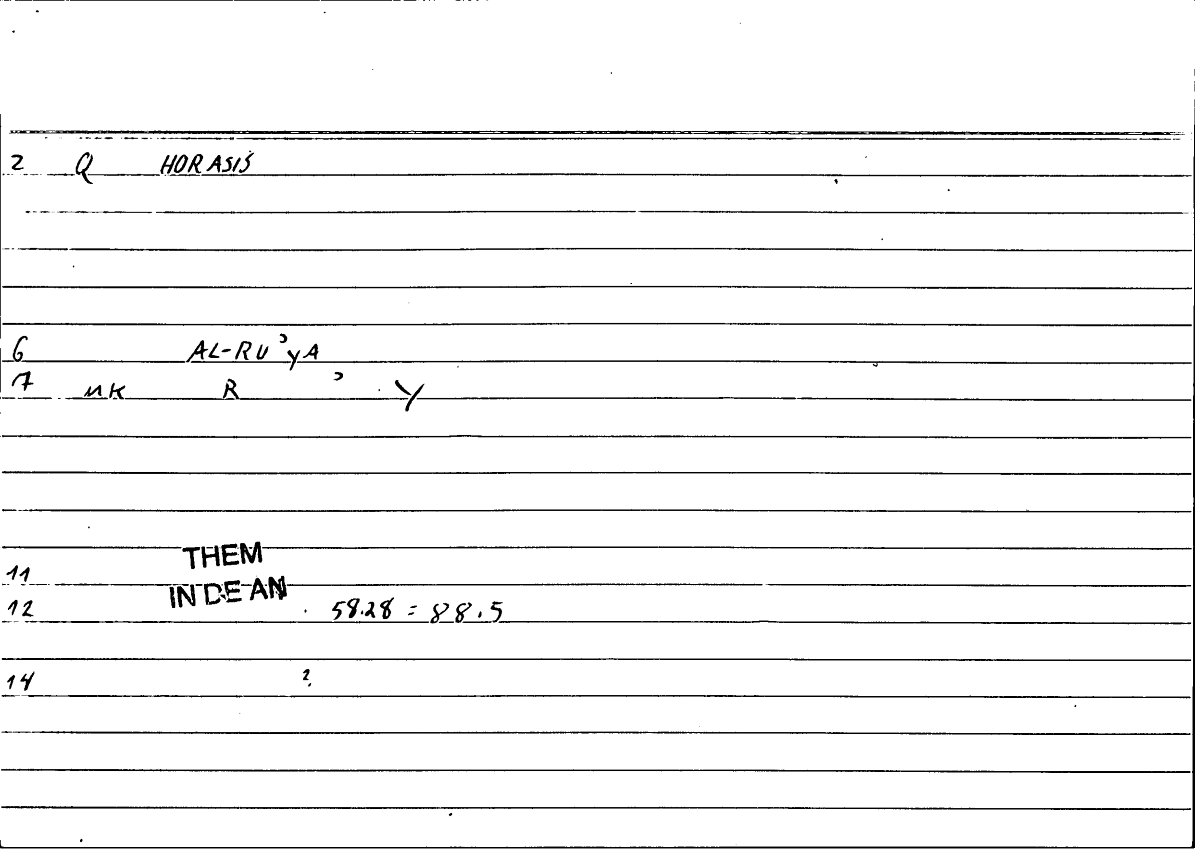 2 Q HORASIS
6 AL-RUʾyA
7 MK R ʾ Y
THEM
11
IN DE AN
12 58.28 = 88.5
14 ?